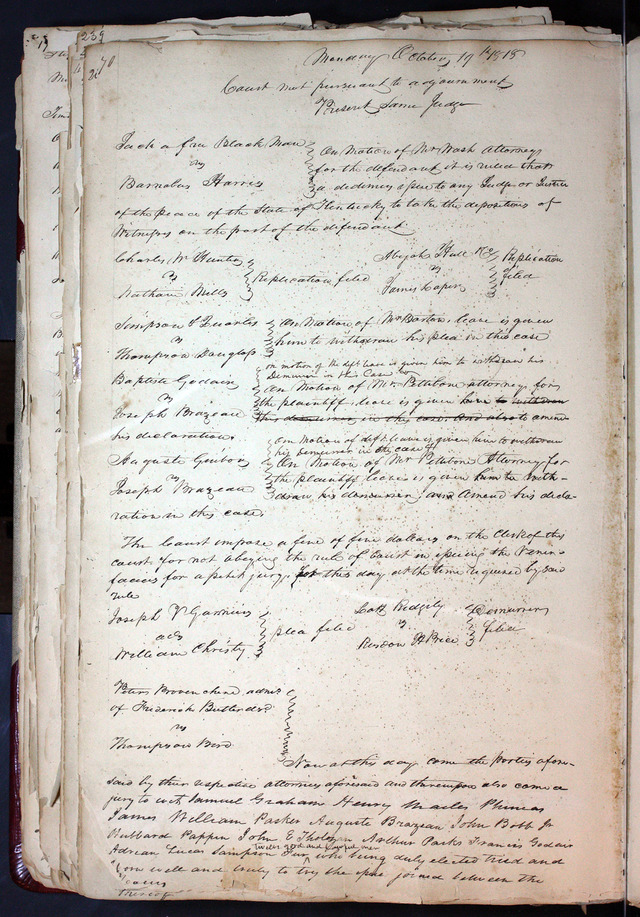 239
270
Monday October 19th 1818
Court met pursuant to adjournment
Present Same Judge
Jack a free Black Man
vs
Barnabas Harris
On Motion of Mr Wash Attorney
for the defendant it is ruled that
a dedimus issue to any Judge or Justice
of the peace of the State of Kentucky to take the depositions of
Witnesses on the part of the defendant
Charles W Hunter
vs
Nathan Mills
Replication filed
Abijah Hull &Co
vs
James Loper
Replication
filed
Simpson & Quarles
vs
Thompson Douglass
On Motion of Mr Barton leave is given
him to withdraw his plea in this case
Baptiste Godair
vs
Joseph Brazeau
on motion of the deft leave is given him to withdraw his
Demurrer in this Case
On Motion of Mr Pettibone attorney for
the plaintiff leave is given him to withdraw
his demurrer in the case And also to amend
his declaration
Auguste Guibor
vs
Joseph Brazeau
on Motion of deft leave is given him to withdraw
his Demurrer in the case
On Motion of Mr Pettibone Attorney for
the plaintiff leave is given him to with-
draw his demurrer and amend his decla-
ration in this case
The Court impose a fine of five dollars on the Clerk of this
court for not obeying the rule of Court in issuing the Venire
facias for a petit jury for this day at the time required by said
rule
Joseph V Garnier
ads
William Christy
plea filed
Lott Ridgely
vs
Risdon H Price
Demurrer
filed
Peter Provenchere admr
of Frederick
vs
Thompson Bird
Now at this day come the Parties afore-
said by their respective attorneys aforesaid and thereupon also came a
jury to wit Samuel Graham Henry
James William Parker Auguste Brazeau John Bobb Jr
Hubbard Pappin John E Tholozan Arthur Parks Francis Godair
Adrian Lucas Sampson
Twelve good and lawful men
who being duly elected tried and
sworn well and truly to try the issue joined between the